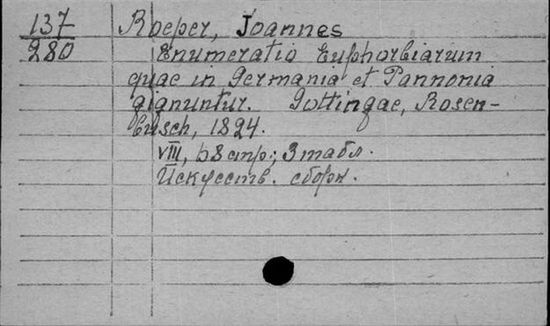 137
280
Roeper, Joannes
Enumeratio Euphorbiarum
quae in Germania et Pannonia
gignuntur. Gottingae, Rosen-
busch, 1824.
VIII, 68 стр.; 3 табл.
Искусств. сборн.